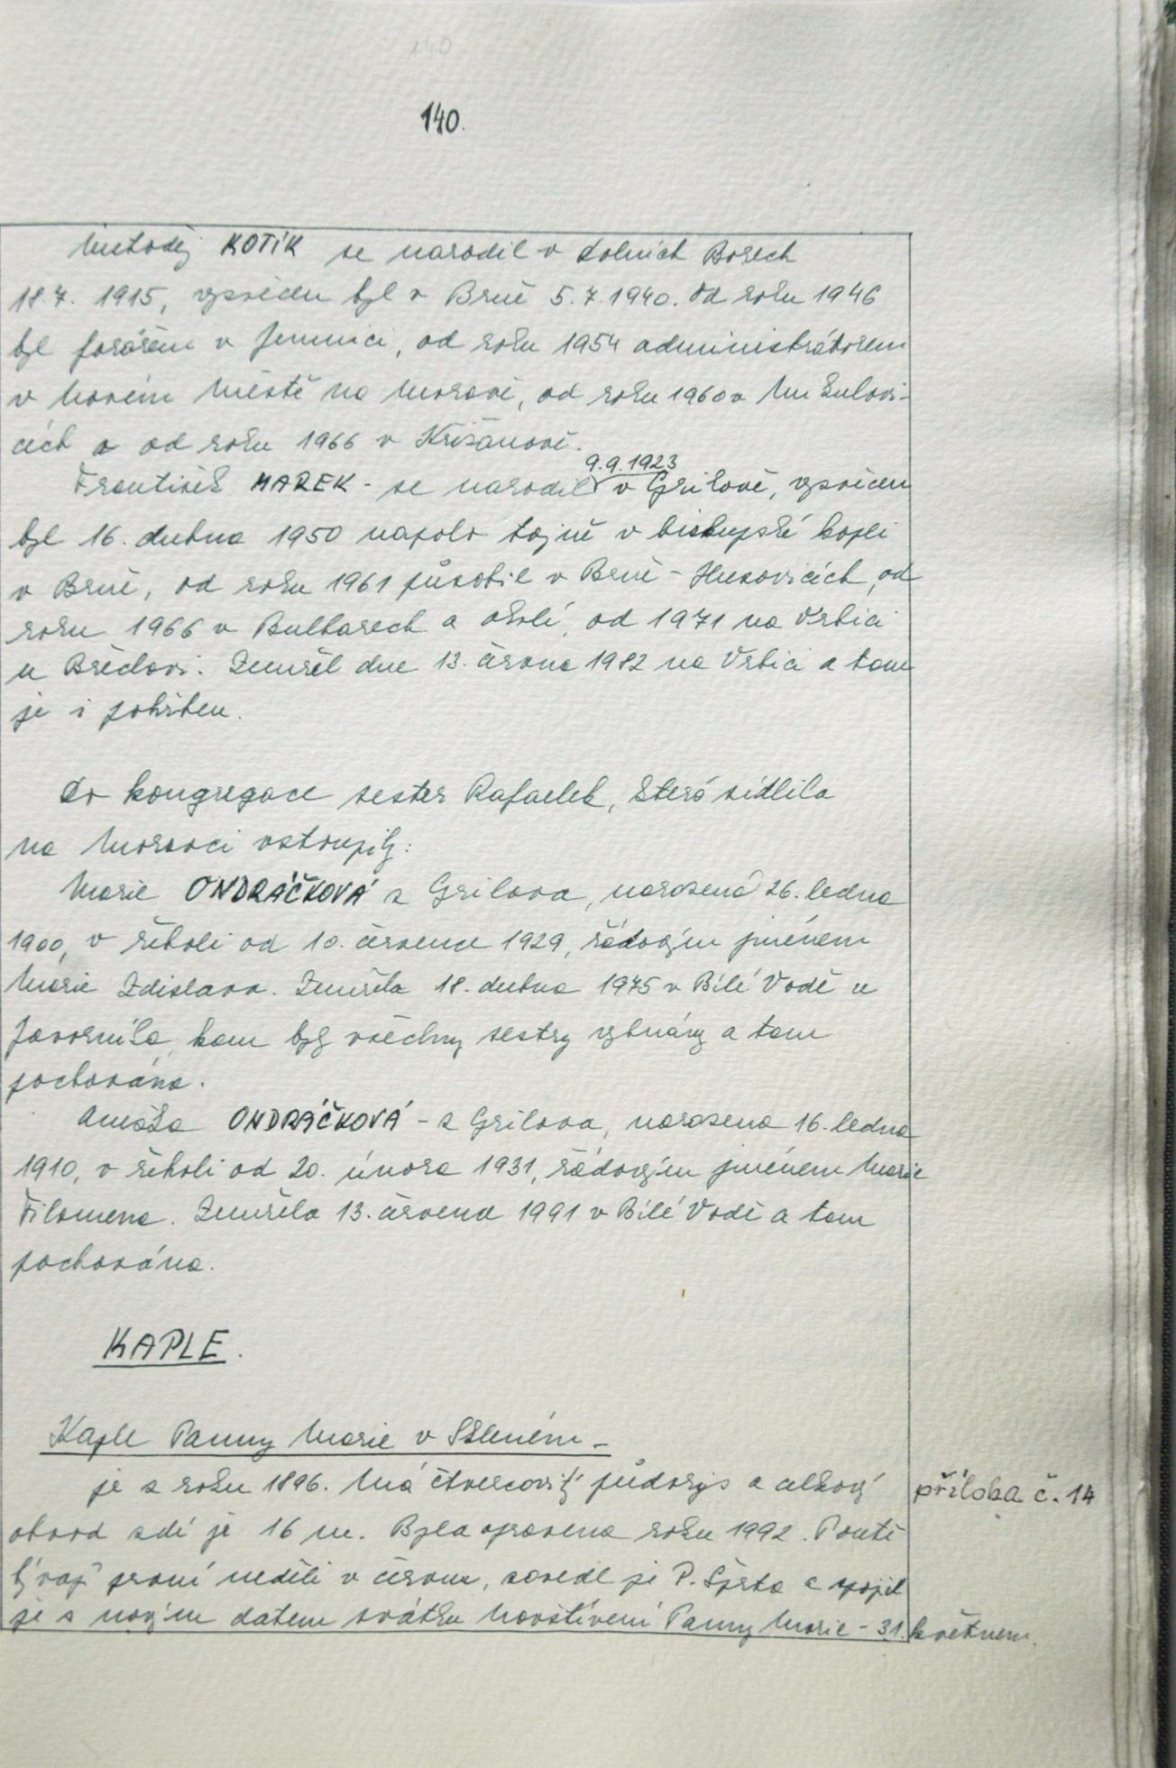 140.
Metoděj KOTÍK se narodil v Dolních Borech
18.7. 1915, vysvěcen byl v Brně 5.7.1940. Od roku 1946
byl farářem v Jemnici, od roku 1954 administrátorem
v Novém Městě na Moravě, od roku 1960 v Mikulovi-
cích a od roku 1966 v Křižanově.
9.9.1923
František MAREK - se narodil v Grilově, vysvěcen
byl 16. dubna 1950 napolo tajně v biskupské kapli
v Brně, od roku 1961 působil v Brně - Husovicích, od
roku 1966 v Bulharech a okolí, od 1971 na Vrbici
u Břeclavi. Zemřel dne 13. června 1982 na Vrbici a tam
je i pohřben.
Do kongregace sester Rafaelek, která sídlila
na Moravci vstoupily:
Marie ONDRÁČKOVÁ z Grilova, narozená 26. ledna
1900, v řeholi od 10. července 1929, řádovým jménem
Marie Zdislava. Zemřela 18. dubna 1975 v Bílé Vodě u
Javorníka, kam byly všechny sestry vyhnány a tam
pochována.
Anežka ONDRÁČKOVÁ - z Grilova, narozena 16. ledna
1910, v řeholi od 20. února 1931, řádovým jménem Marie
Filomena. Zemřela 13. července 1991 v Bílé Vodě a tam
pochována.
KAPLE.
Kaple Panny Marie v Skleném -
je z roku 1896. Má čtvercovitý půdorys a celkový
příloha č. 14
obvod zdí je 16 m. Byla opravena roku 1992. Poutě
bývají první neděli v červnu, zavedl je P. a spojil
je s novým datem svátku Navštívení Panny Marie - 31. květnem.